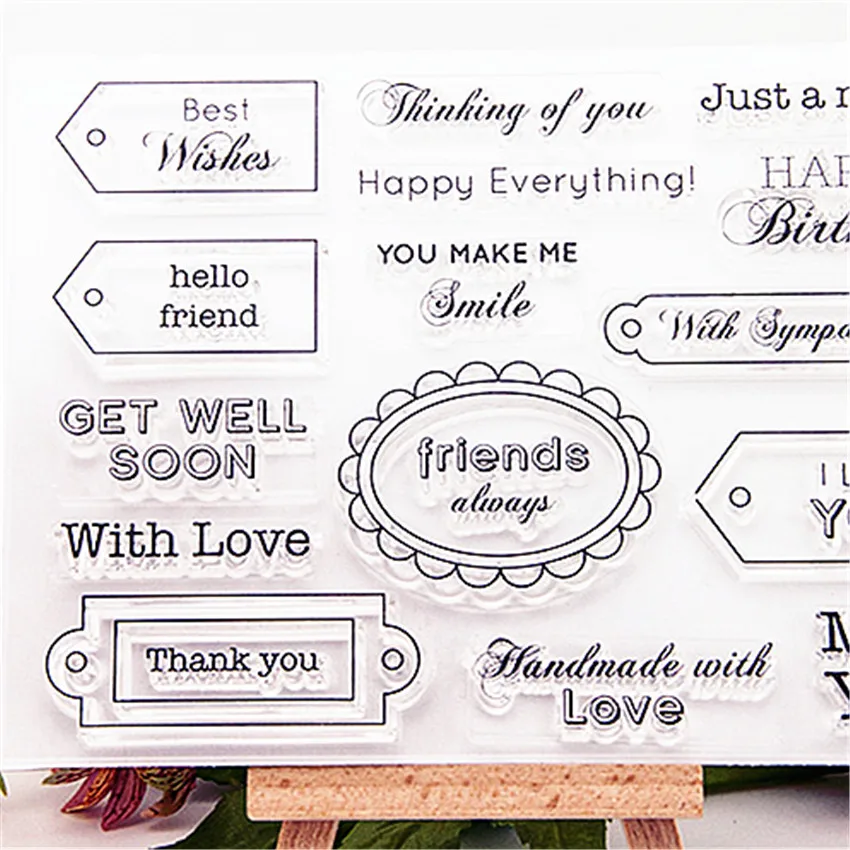 Best
Wishes
Thinking of you
Just a
Happy Everything!
hello
friend
YOU MAKE ME
Smile
With
GET WELL
SOON
friends
always
I
With Love
Thank you
Handmade with
Love